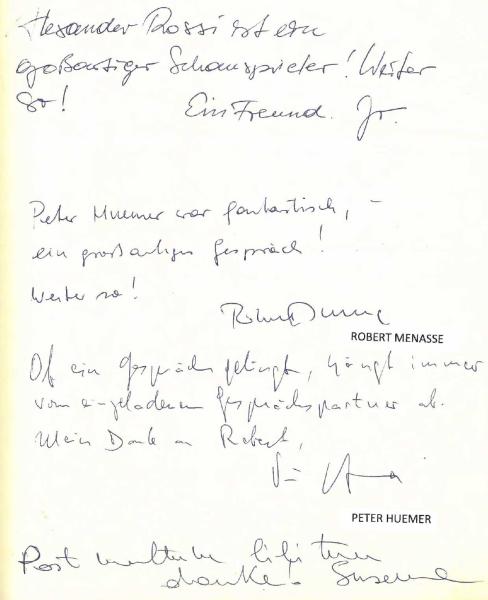 Alexander Rossi ist ein
großartiger Schauspieler! Weiter
so!
Ein Freund. Jr.
Peter Huemer war fantastisch, –
ein großartiges Gespräch!
Weiter so!
ROBERT MENASSE
Ob ein Gespräch gelingt, hängt immer
vom eingeladenen Gesprächspartner ab.
Mein Dank an Robert,
PETER HUEMER
Post
danke! Susanne